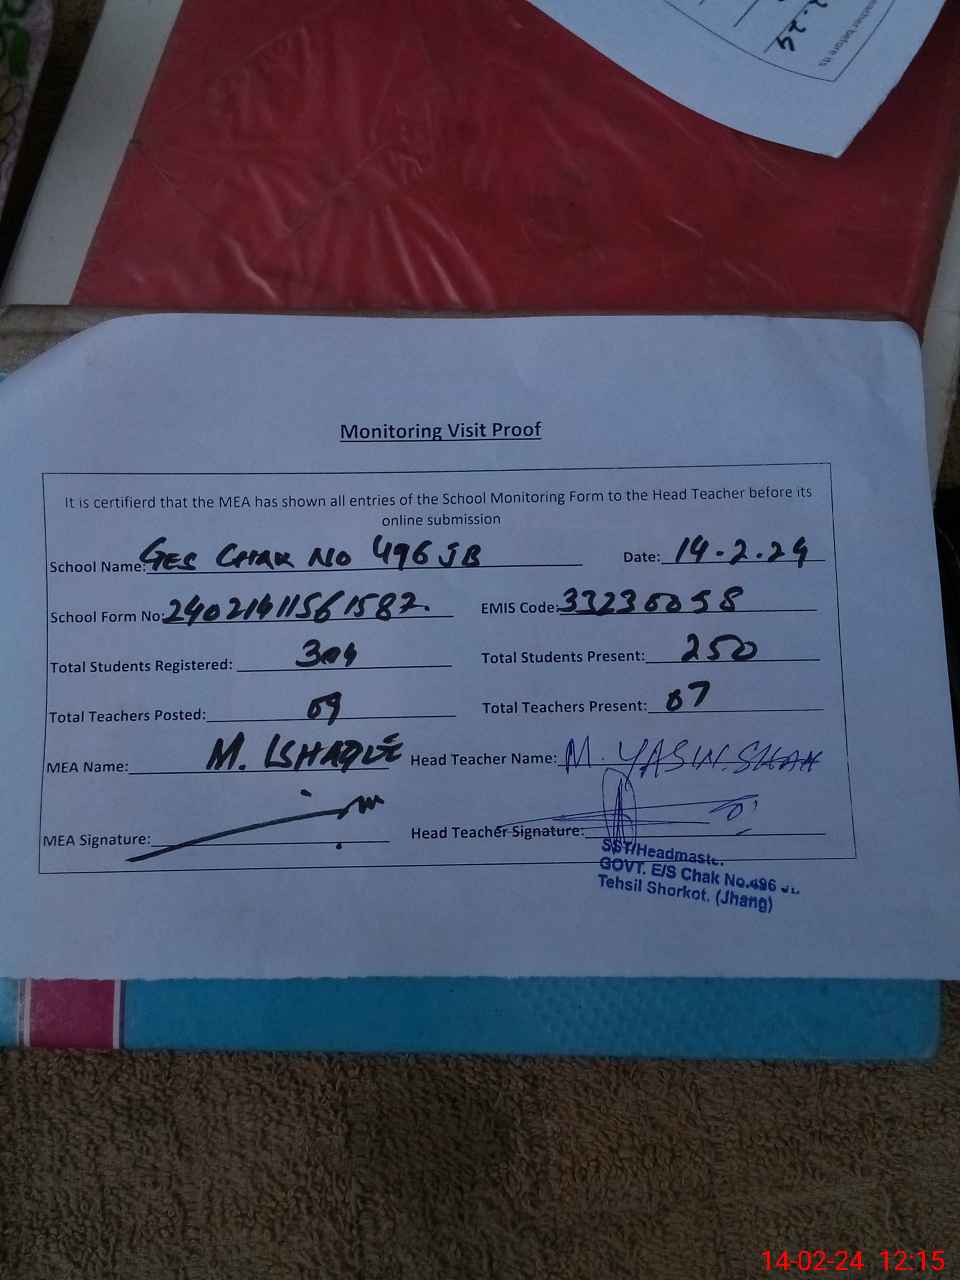 2.24
teacher before its
Monitoring Visit Proof
It is certifierd that the MEA has shown all entries of the School Monitoring Form to the Head Teacher before its
online submission
School Name: GES CHAK NO 496 JB Date: 14.2.24
School Form No: 24021411561587. EMIS Code: 33230058
Total Students Registered: 304 Total Students Present: 250
Total Teachers Posted: 09 Total Teachers Present: 07
MEA Name: M. ISHAQUE Head Teacher Name: M. YASIN. SHAH
MEA Signature: Head Teacher Signature:
SST/Headmaste.
GOVT. E/S Chak No.496 J
Tehsil Shorkot. (Jhang)
14-02-24 12:15